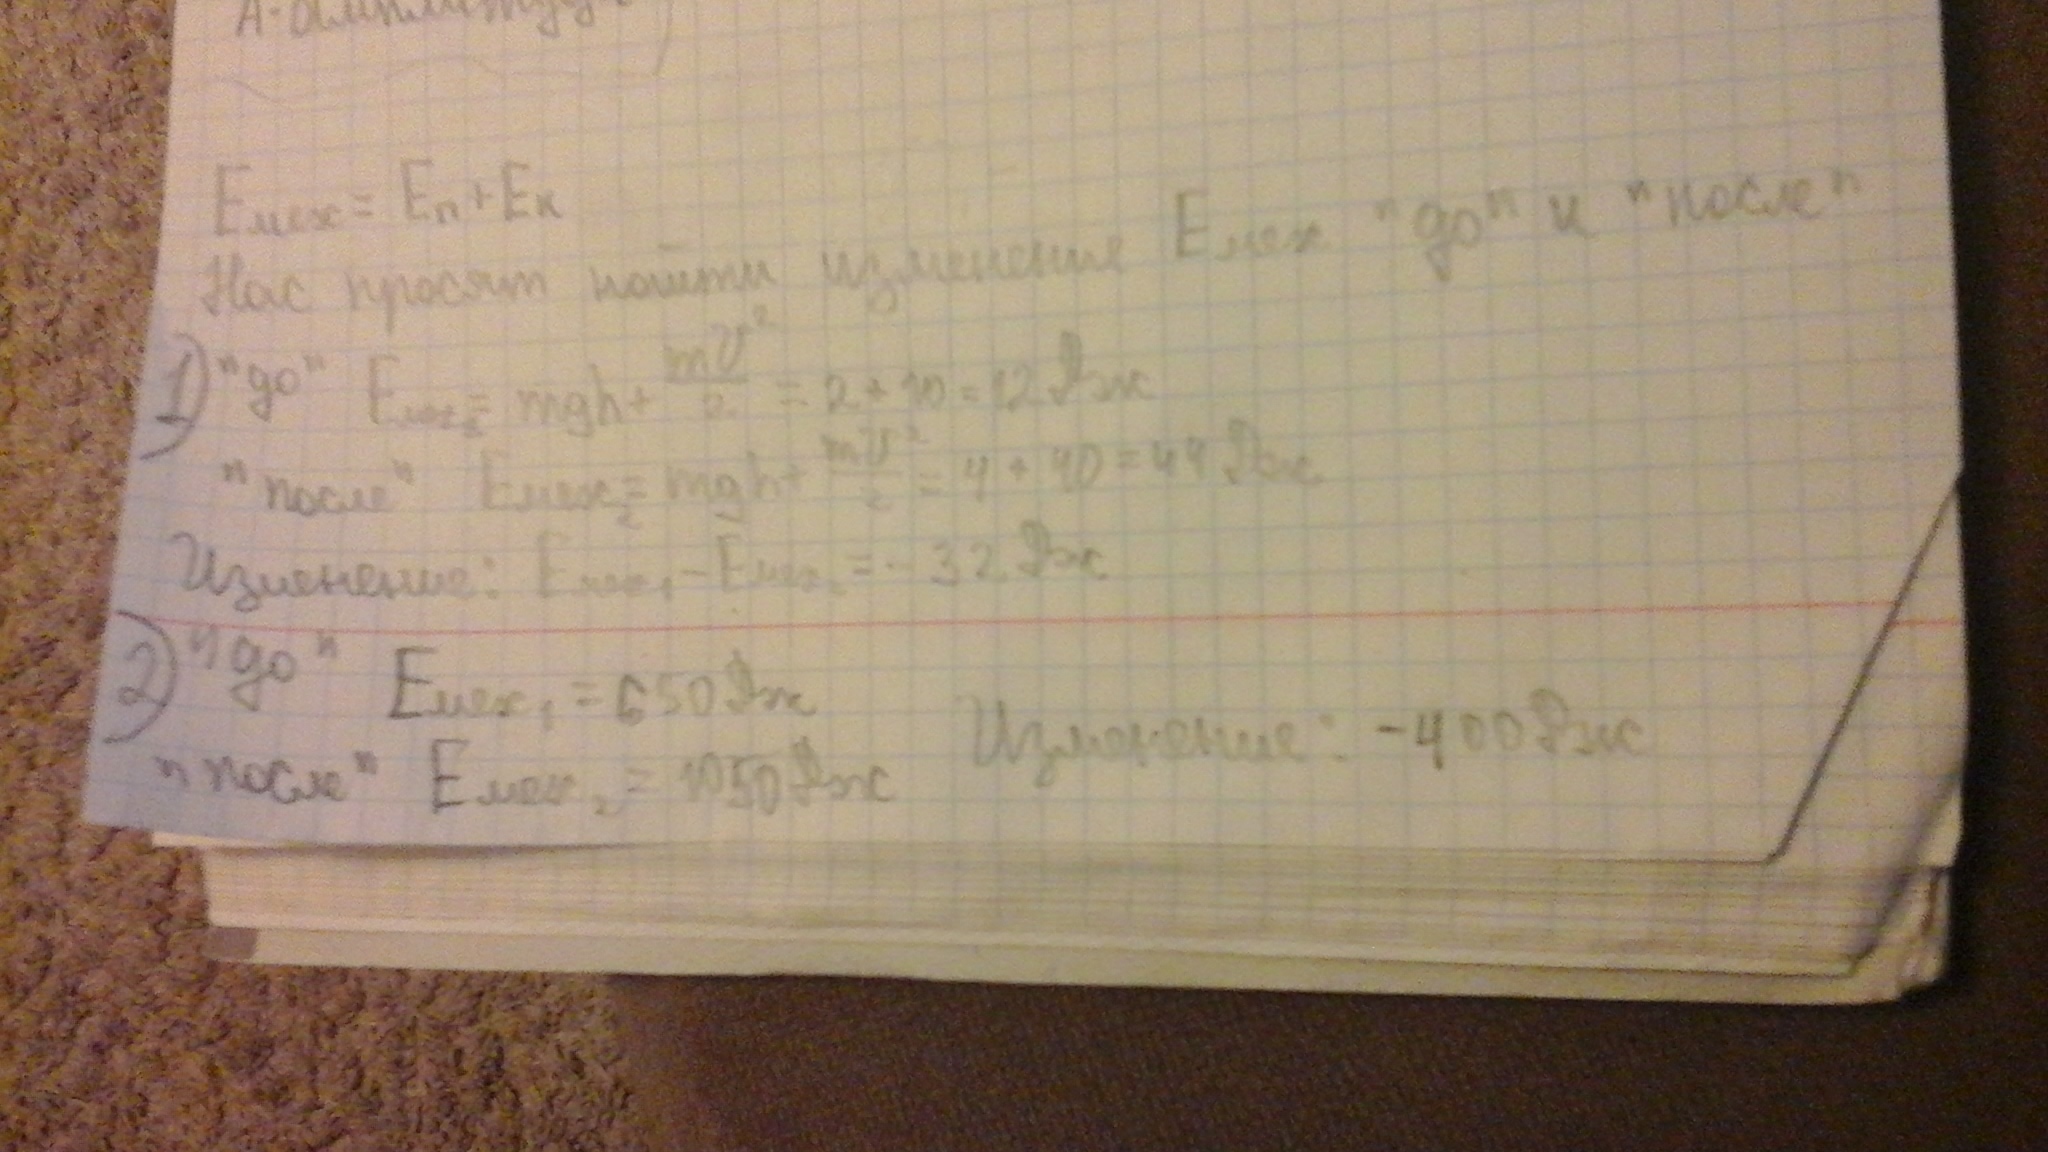 А-амплитуда
Eмех = Eп + Eк
Нас просят найти изменение Eмех "до" и "после"
1) "до" Eмех₁ = mgh + mV²/2 = 2 + 10 = 12 Дж
"после" Eмех₂ = mgh₂ + mV²/2 = 4 + 40 = 44 Дж
Изменение: Eмех₁ - Eмех₂ = - 32 Дж
2) "до" Eмех₁ = 650 Дж
"после" Eмех₂ = 1050 Дж
Изменение: -400 Дж